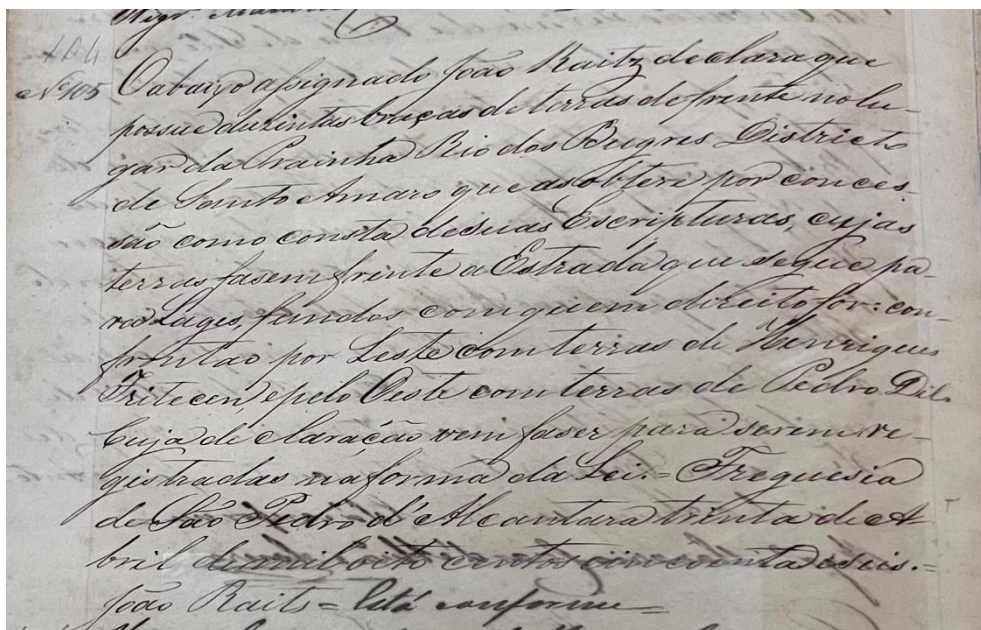 104
Nº 105 O abaixo assignado João Raitz declara que
possue duzintas braças de terras de frente no lu-
gar da Prainha Rio dos Bugres Districto
de Santo Amaro que as obteve por conces-
são como consta de suas Escripturas, cujas
terras fasem frente a Estrada que segue pa-
ra Lages, fundos com quem direito for: con-
frontão por Leste com terras de Henriques
e pelo Oeste com terras de Pedro Dil
Cuja declaração vem faser para serem re-
gistradas na forma da Lei.= Freguesia
de São Pedro d'Alcantara trinta de A-
bril de mil oito centos cincoenta e seis.=
João Raits = Está conforme =